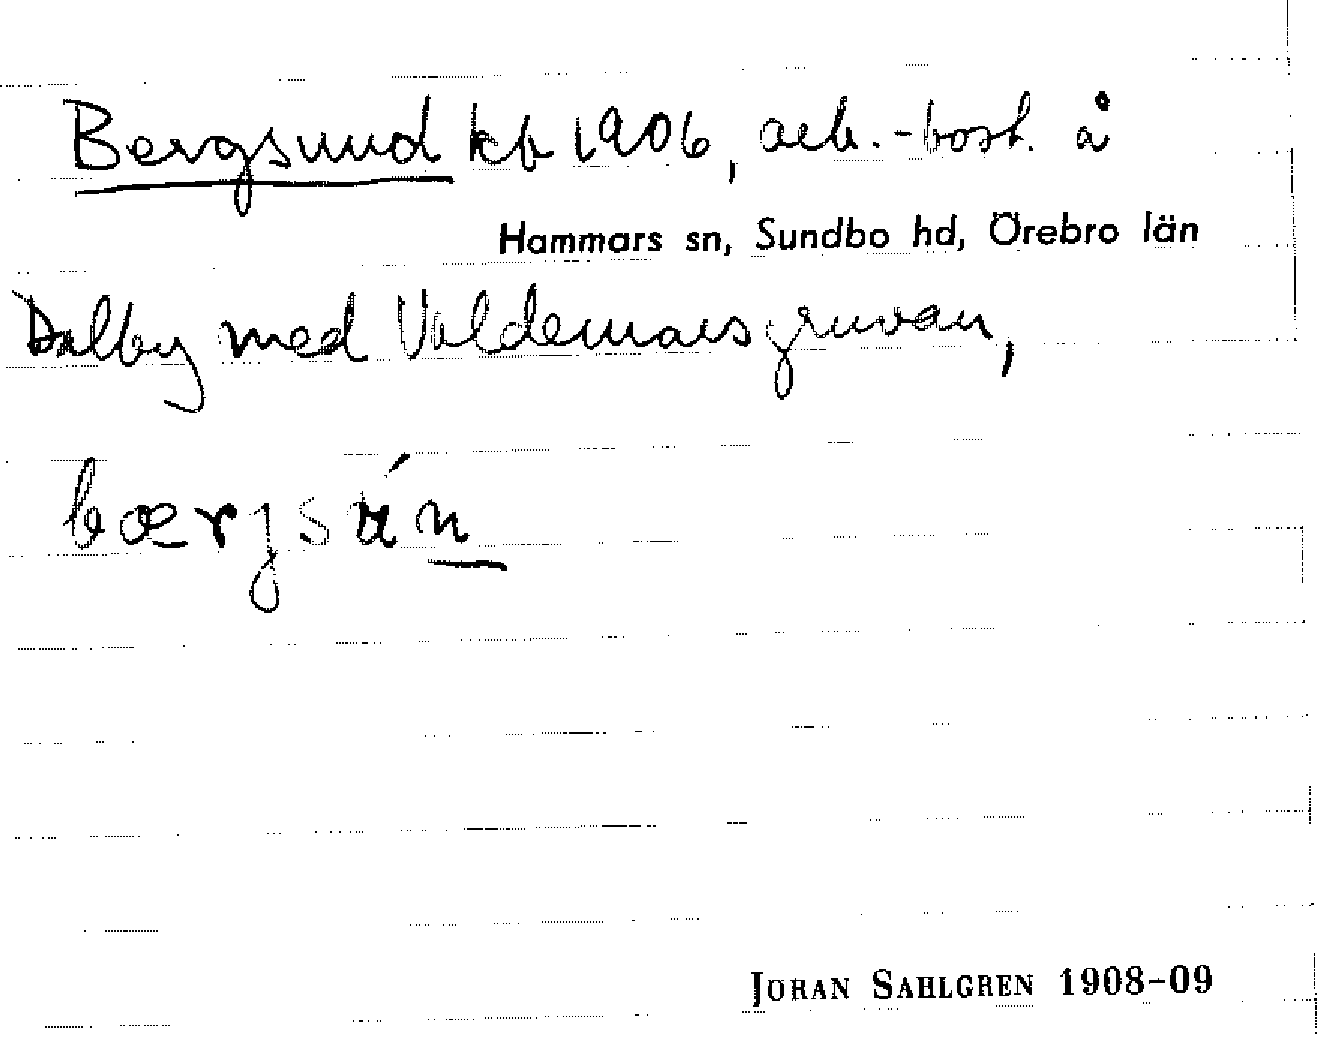 Bergsund kb 1906, arb.-bost. å
Hammars sn, Sundbo hd, Örebro län
Dalby med Valdemarsgruvan,
bærjsún
JÖRAN SAHLGREN 1908-09